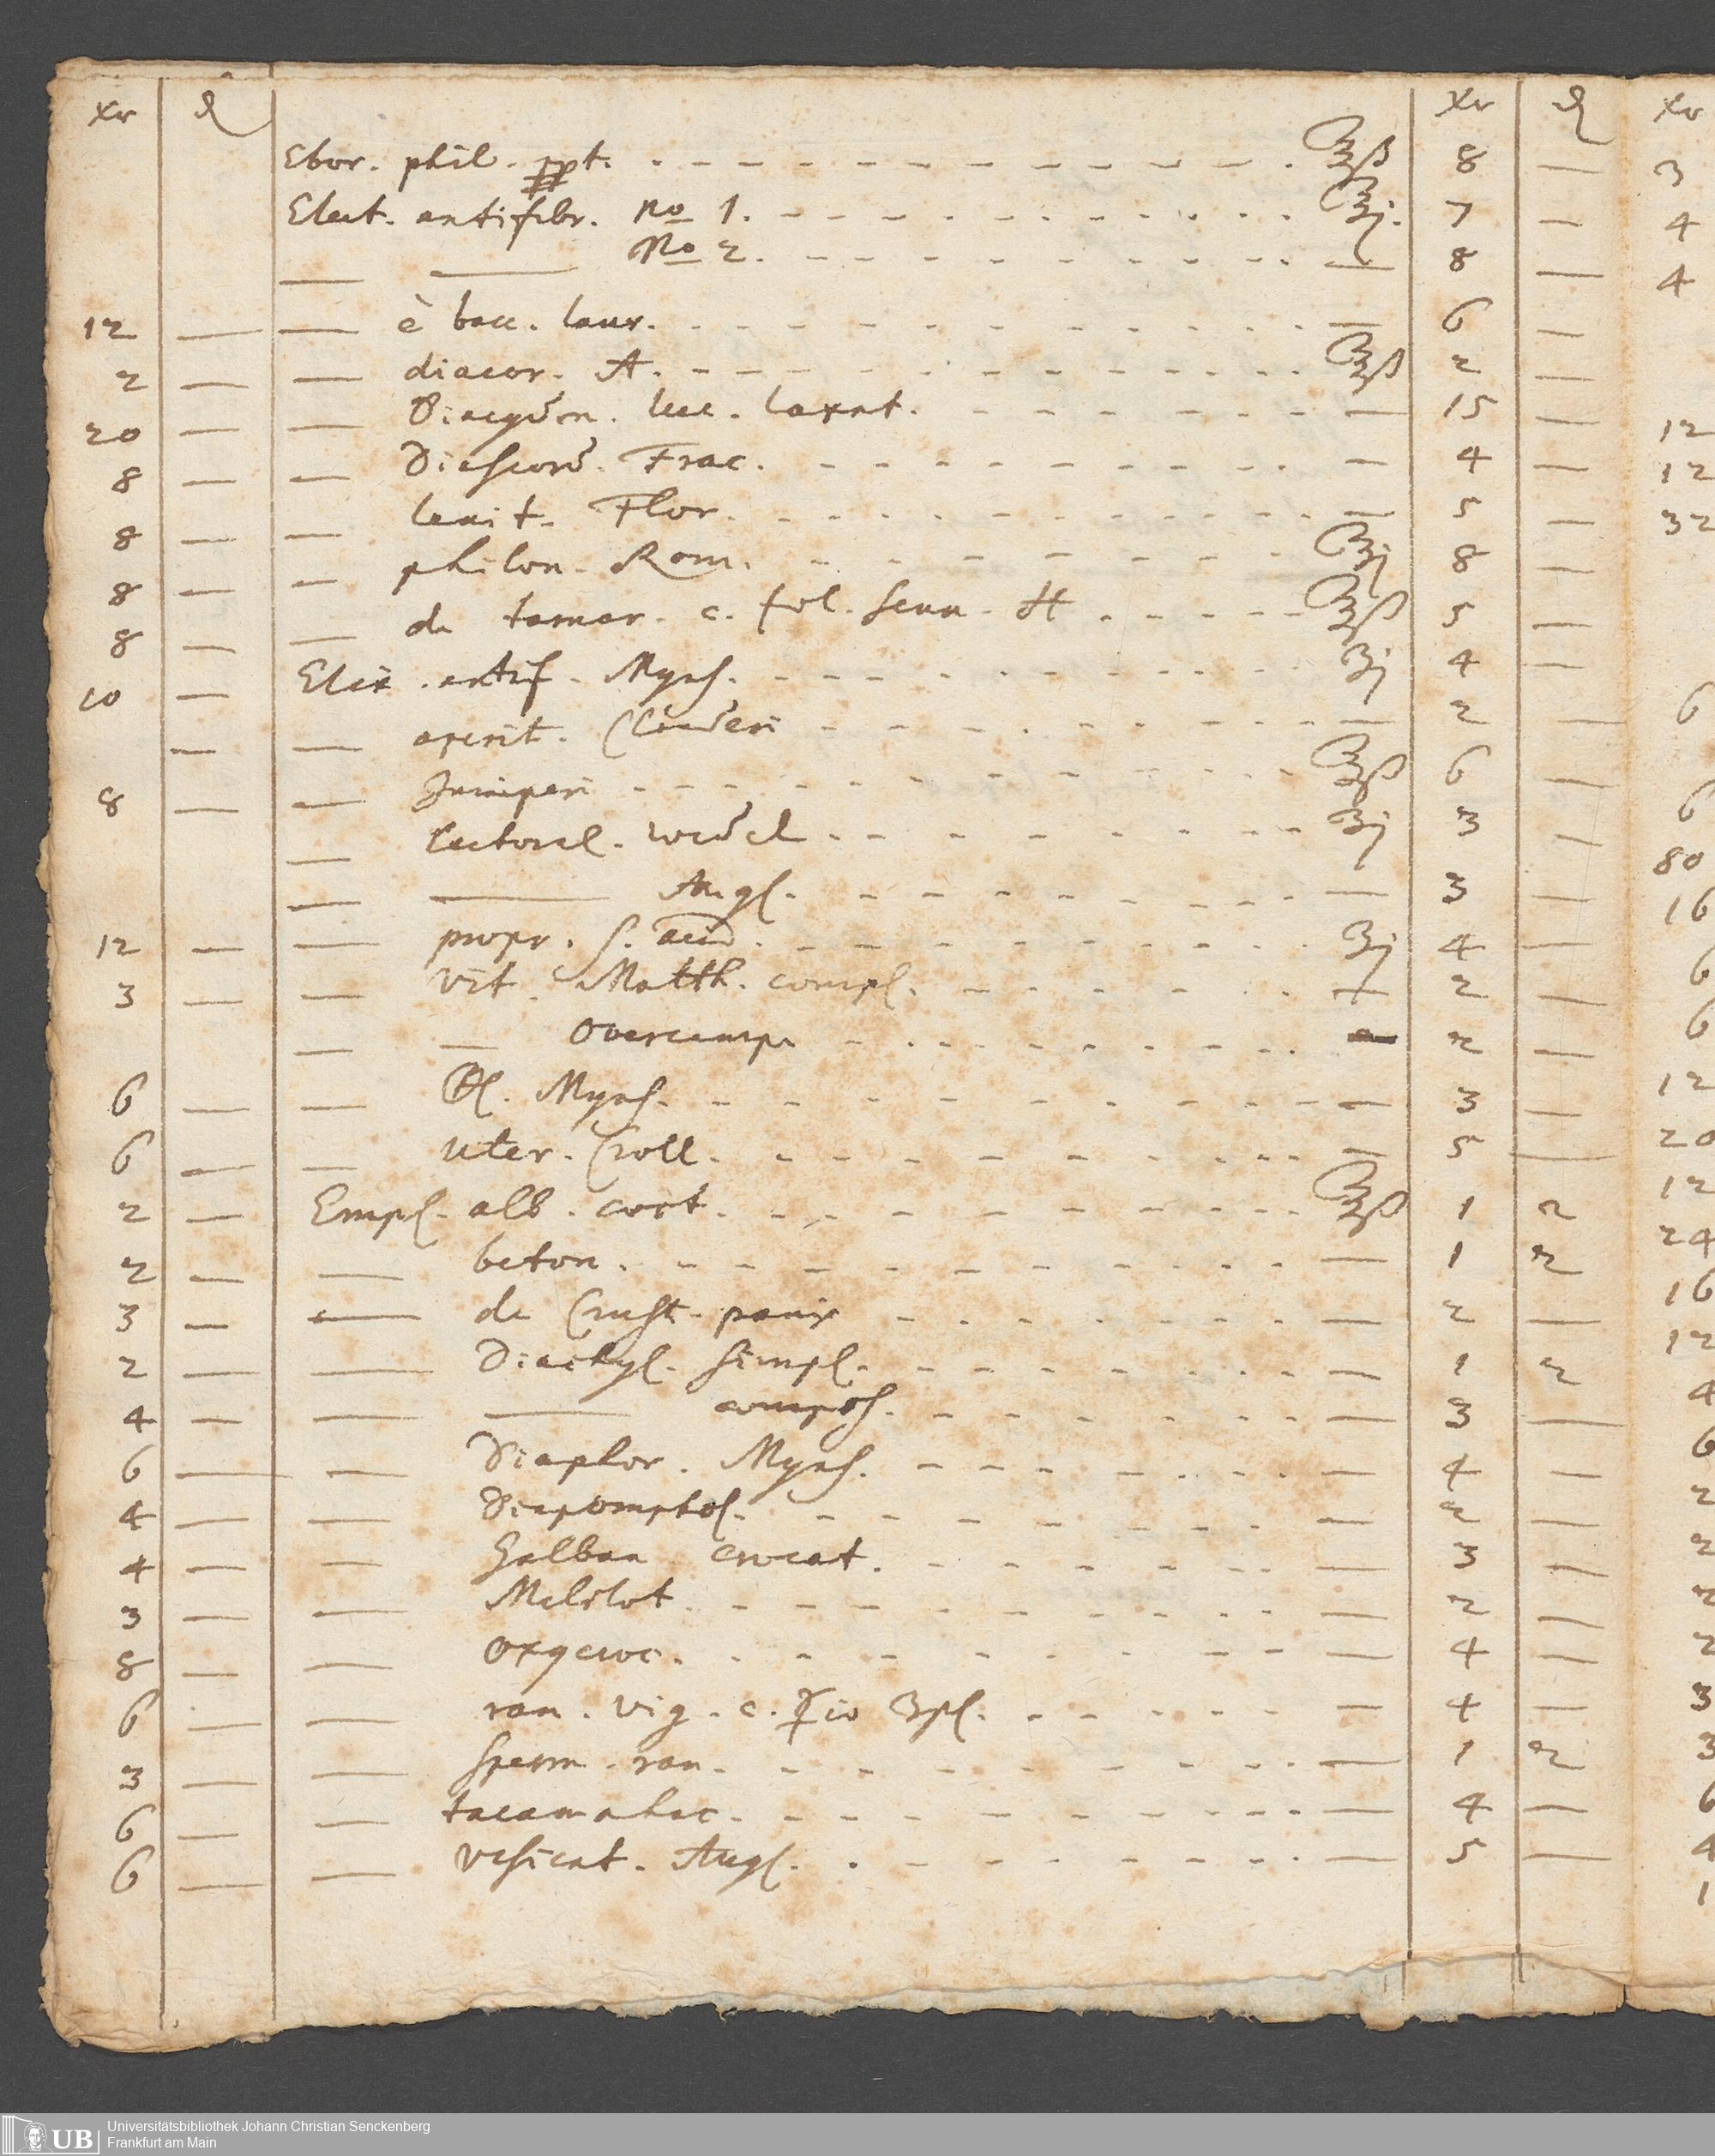 Xr ₰ Xr ₰ Xr
Ebor. phil. ppt. ℥ß 8 — 3
Elect. antifebr. No 1. ℥j. 7 — 4
— — No 2. — 8 — 4
12 — — è bacc. laur. — 6 —
2 — — diacor. A. ℥ß 2 —
20 — — Diacydon. luc. laxat. — 15 — 12
8 — — Diascord. Frac. — 4 — 12
8 — — lenit. Flor. — 5 — 32
8 — — philon. Rom. ℥j 8 —
8 — — de tamar. c. fol. senn. ℥ß 5 —
10 — Elix. antif. Myns. ʒj 4 —
— — aperit. Clauderi — 2 — 6
8 — — Juniperi ℥ß 6 — 6
— Pectoral. Wedel ʒj 3 — 80
— — Angl. — 3 — 16
12 — — propr. s. acid. ʒj 4 — 6
3 — — vit. Matth. compl. — 2 — 6
— — Overcamp. — 2 —
6 — — Myns. — 3 — 12
6 — — uter. Croll. — 5 — 20
2 — Empl. alb. coct. ℥ß 1 2 12
2 — — beton. — 1 2 24
3 — — de Crust. panis — 2 — 16
2 — — Diachyl. simpl. — 1 2 12
4 — — — compos. — 3 — 4
6 — — Diaphor. Myns. — 4 — 6
4 — — Diapomphol. — 2 — 2
4 — — Galban crocat. — 3 — 2
3 — — Melilot — 2 — 2
8 — — oxycroc. — 4 — 2
6 — — ran. vig. c. ☿io — 4 — 3
3 — — sperm. ran. — 1 2 3
6 — — tacamahac. — 4 — 6
6 — — vesicat. Angl. — 5 — 4
1
UB Universitätsbibliothek Johann Christian Senckenberg
Frankfurt am Main